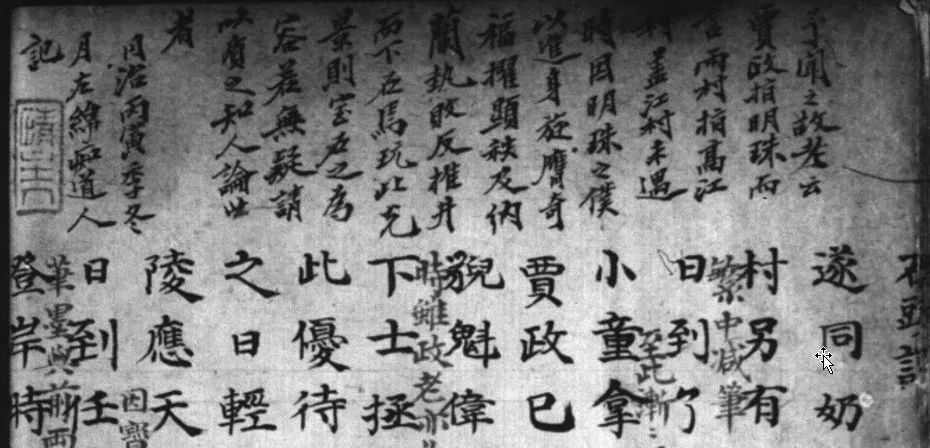 予聞之故老云
賈政指明珠而
言雨村指高江
村蓋江村未遇
時因明珠之僕
以進身旋膺奇
福擢顯秩及納
蘭勢敗反推井
而下石焉玩此光
景則寶玉之為
容若無疑請
以質之知人論世
者
同治丙寅季冬
月左綿痴道人
記
石頭記
遂同奶
村另有
繁中減筆
日到了
至此漸
小童拿
賈政已
貌魁偉
時雖政老亦
下士拯
此優待
之日輕
陵應天
因
日到任
華墨與前兩
登岸時